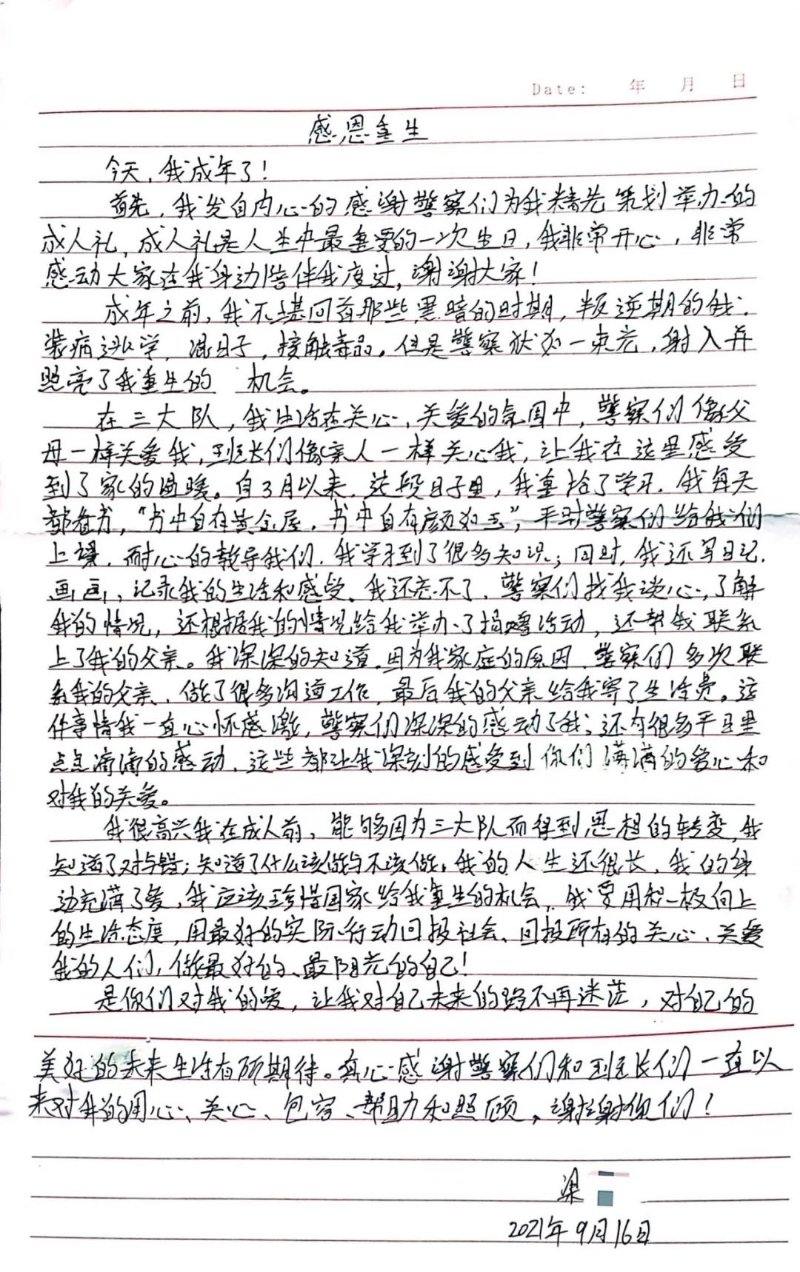 Date: 年 月 日
感恩重生
今天，我成年了！
首先，我发自内心的感谢警察们为我精心策划举办的
成人礼，成人礼是人生中最重要的一次生日，我非常开心，非常
感动大家在我身边陪伴我度过，谢谢大家！
成年之前，我不堪回首那些黑暗的时期，叛逆期的我，
装病逃学，混日子，接触毒品。但是警察犹如一束光，射入并
照亮了我重生的 机会。
在三大队，我生活在关心，关爱的氛围中，警察们像父
母一样关爱我，班长们像亲人一样关心我，让我在这里感受
到了家的温暖。自3月以来，这段日子里，我重拾了学习，我每天
都看书，“书中自有黄金屋，书中自有颜如玉”，平时警察们给我们
上课，耐心的教导我们，我学习到了很多知识；同时，我还写日记，
画画，记录我的生活和感受。我还忘不了，警察们找我谈心，了解
我的情况，还根据我的情况给我举办了捐赠活动，还帮我联系
上了我的父亲。我深深的知道，因为我家庭的原因，警察们多次联
系我的父亲，做了很多沟通工作，最后我的父亲给我寄了生活费。这
件事情我一直心怀感激，警察们深深的感动了我；还有很多平日里
点点滴滴的感动，这些都让我深刻的感受到你们满满的爱心和
对我的关爱。
我很高兴我在成人前，能够因为三大队而得到思想的转变，我
知道了对与错；知道了什么该做与不该做。我的人生还很长，我的身
边充满了爱，我应该珍惜国家给我重生的机会，我要用积极向上
的生活态度，用最好的实际行动回报社会、回报所有的关心、关爱
我的人们，做最好的、最阳光的自己！
是你们对我的爱，让我对自己未来的路不再迷茫，对自己的
美好的未来生活有所期待。真心感谢警察们和班长们一直以
来对我的用心、关心、包容、帮助和照顾，谢谢你们！
梁
2021年9月16日